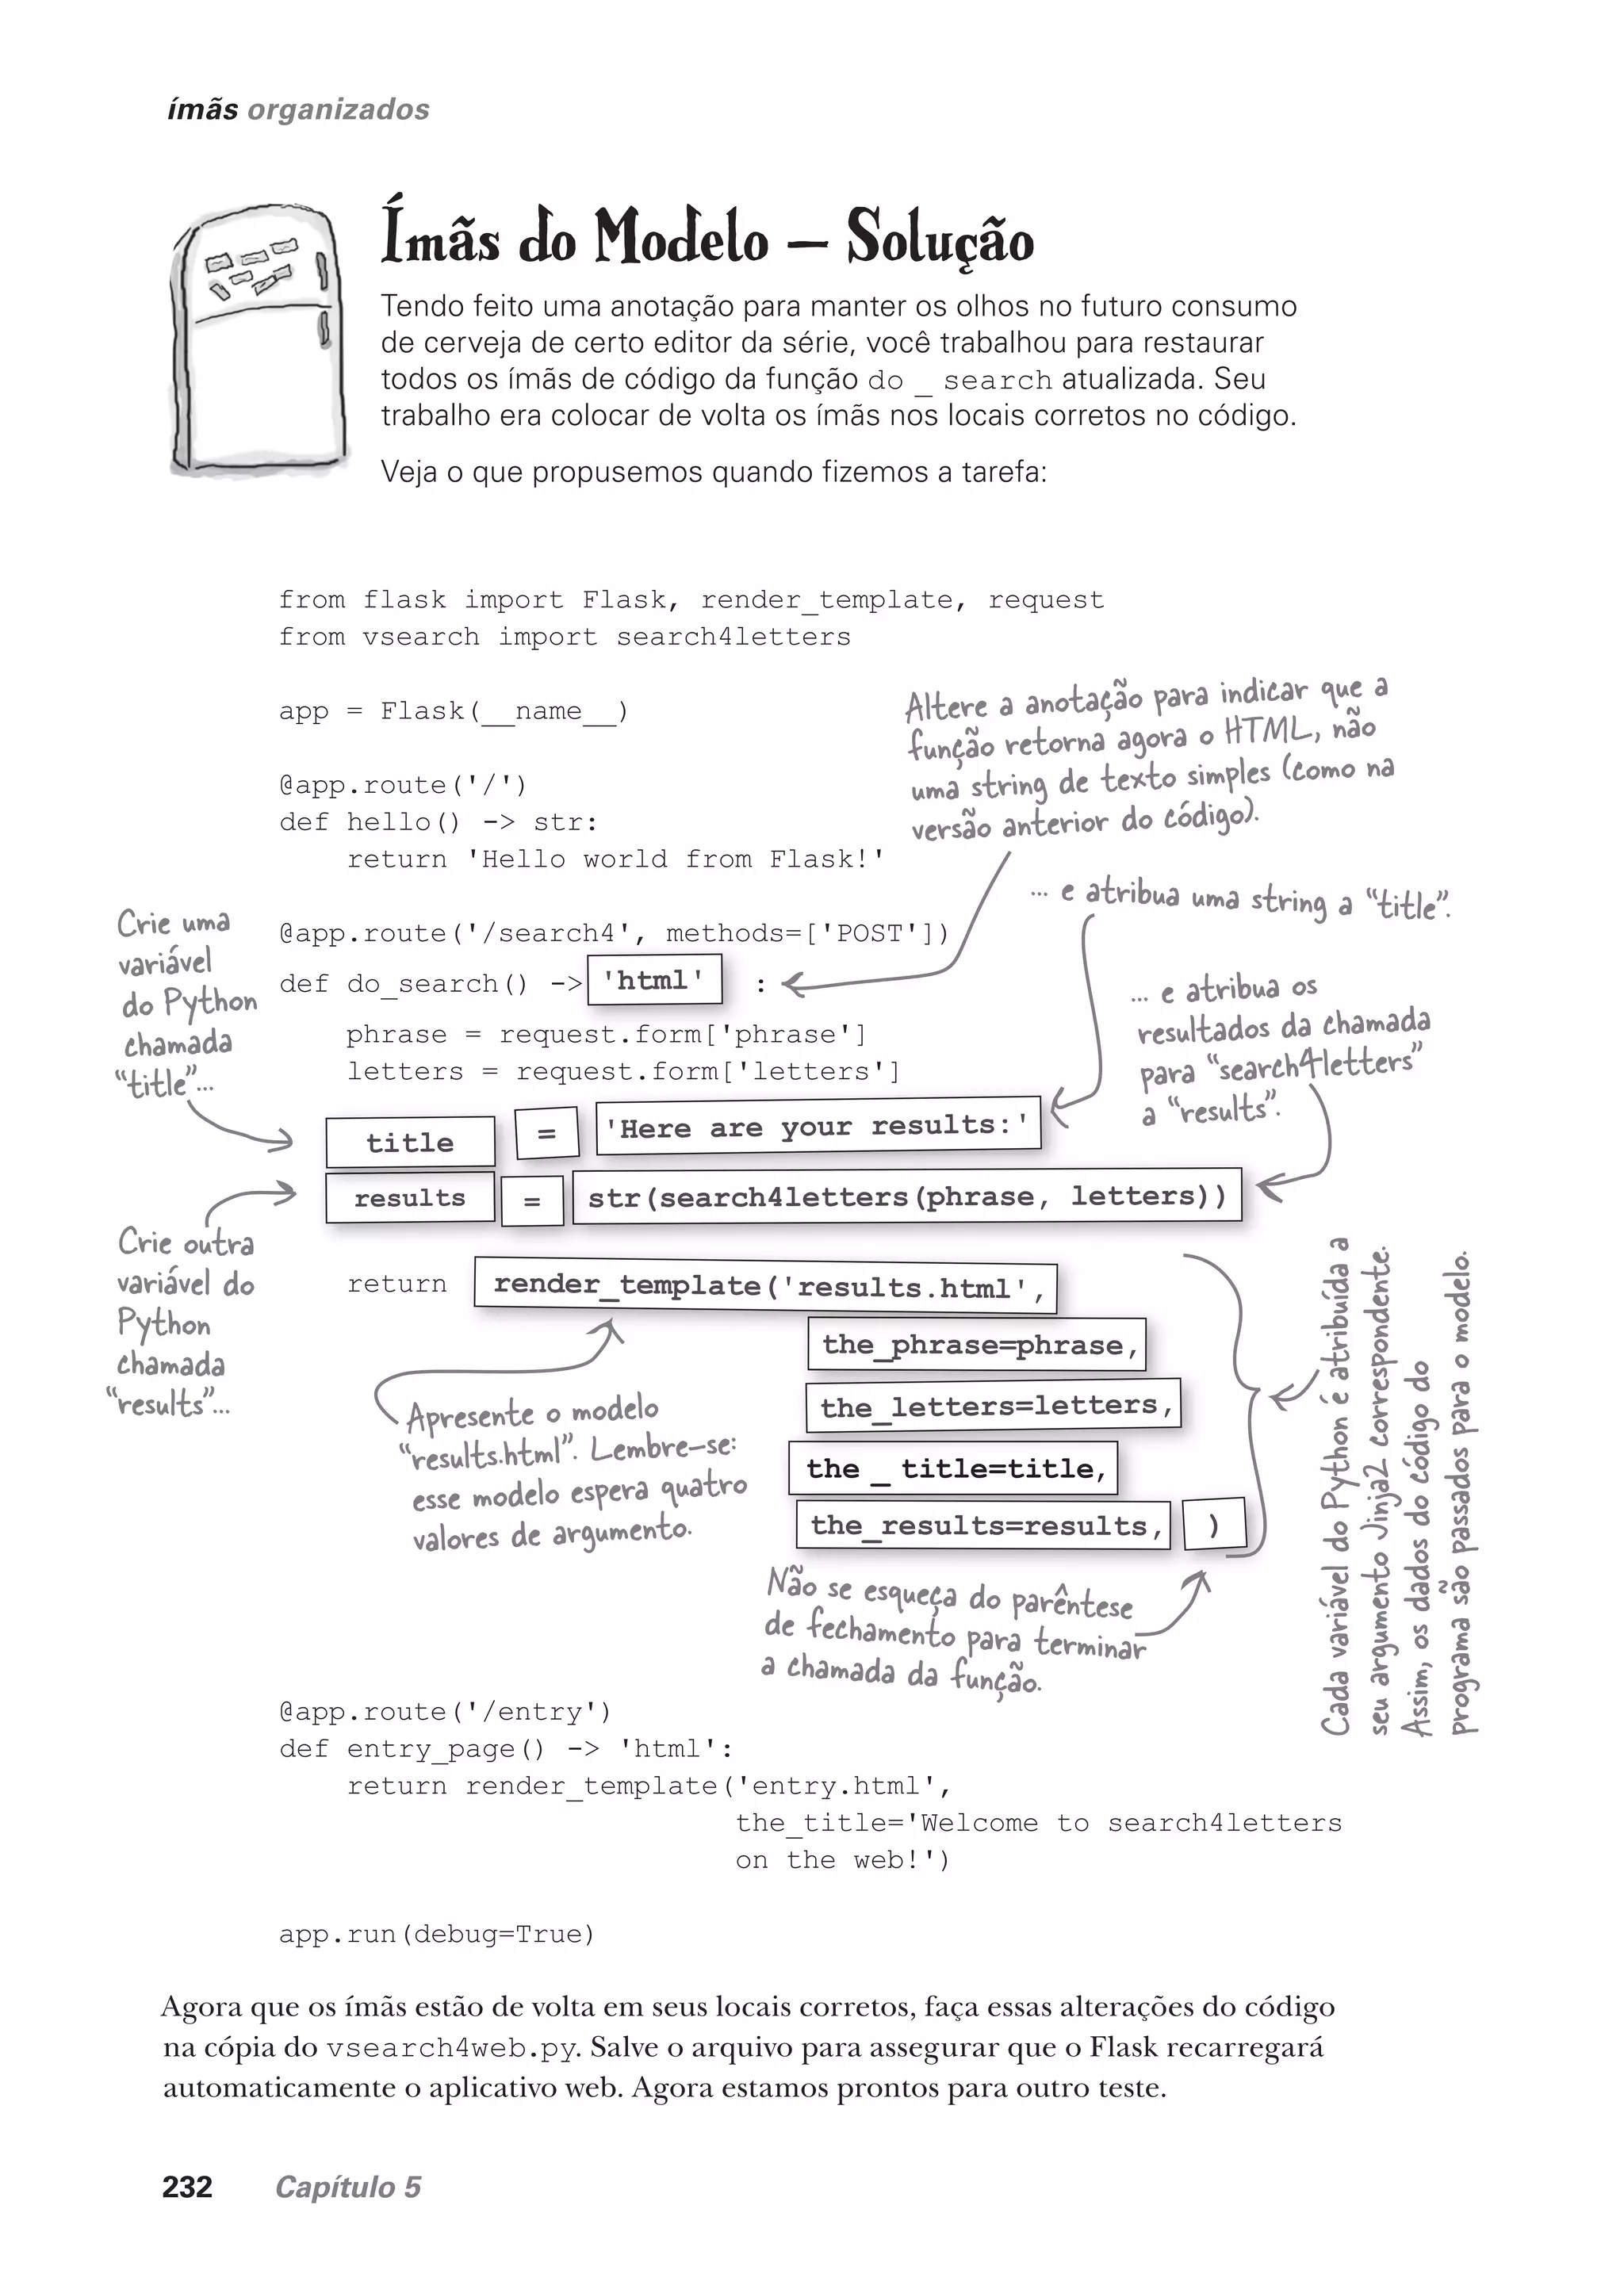 ímãs organizados
Ímãs do Modelo — Solução
Tendo feito uma anotação para manter os olhos no futuro consumo
de cerveja de certo editor da série, você trabalhou para restaurar
todos os ímãs de código da função do _ search atualizada. Seu
trabalho era colocar de volta os ímãs nos locais corretos no código.
Veja o que propusemos quando fizemos a tarefa:
from flask import Flask, render_template, request
from vsearch import search4letters
app = Flask(__name__)
Altere a anotação para indicar que a
função retorna agora o HTML, não
uma string de texto simples (como na
versão anterior do código).
@app.route('/')
def hello() -> str:
    return 'Hello world from Flask!'
... e atribua uma string a “title”.
Crie uma
variável
do Python
chamada
“title”...
@app.route('/search4', methods=['POST'])
def do_search() -> 'html' :
    phrase = request.form['phrase']
    letters = request.form['letters']
... e atribua os
resultados da chamada
para “search4letters”
a “results”.
title = 'Here are your results:'
results = str(search4letters(phrase, letters))
Crie outra
variável do
Python
chamada
“results”...
return render_template('results.html',
the_phrase=phrase,
the_letters=letters,
the _ title=title,
the_results=results, )
Apresente o modelo
“results.html”. Lembre-se:
esse modelo espera quatro
valores de argumento.
Cada variável do Python é atribuída a
seu argumento Jinja2 correspondente.
Assim, os dados do código do
programa são passados para o modelo.
Não se esqueça do parêntese
de fechamento para terminar
a chamada da função.
@app.route('/entry')
def entry_page() -> 'html':
    return render_template('entry.html',
the_title='Welcome to search4letters
on the web!')
app.run(debug=True)
Agora que os ímãs estão de volta em seus locais corretos, faça essas alterações do código
na cópia do vsearch4web.py. Salve o arquivo para assegurar que o Flask recarregará
automaticamente o aplicativo web. Agora estamos prontos para outro teste.
232 Capítulo 5